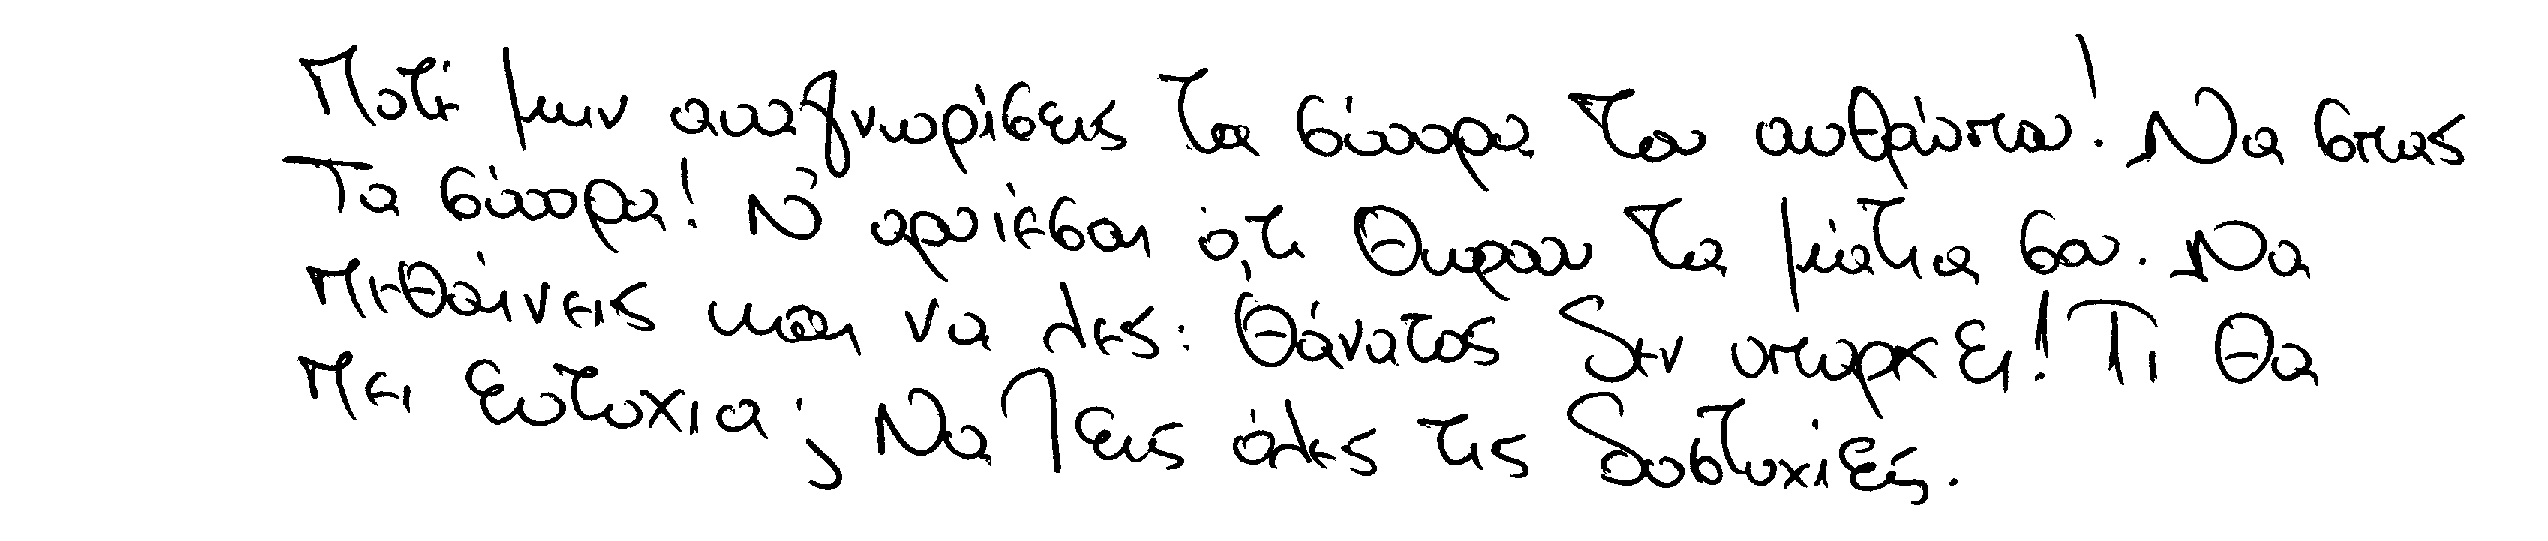 Ποτέ μην αναγνωρίσεις τα σύνορα του ανθρώπου! Να σπας
τα σύνορα! Ν' αρνιέσαι ό,τι θωρούν τα μάτια σου. Να
πεθαίνεις και να λες: Θάνατος δεν υπάρχει! Τι θα
πει ευτυχία; Να ζεις όλες τις δυστυχίες.